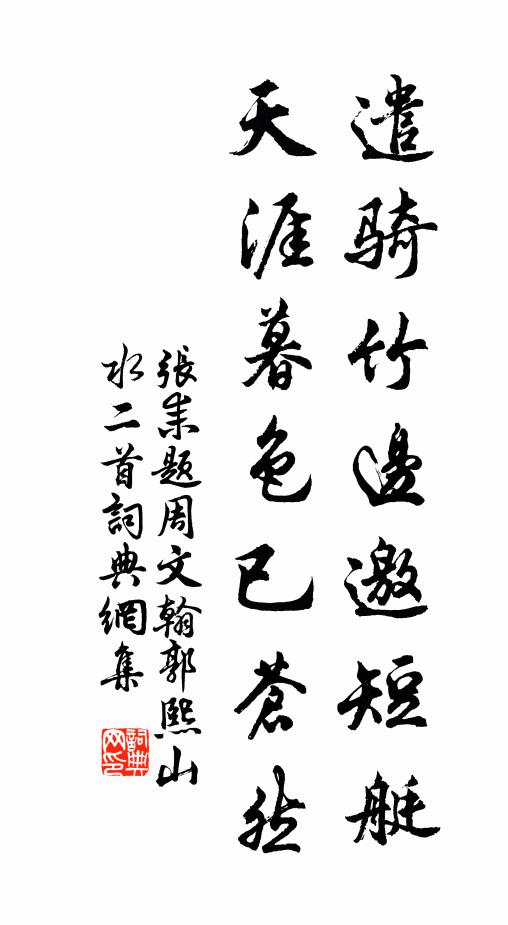 遣騎竹邊邀短艇
天涯暮色已蒼然
張耒題周文翰郭熙山
水二首詞典網集
詞典
网印